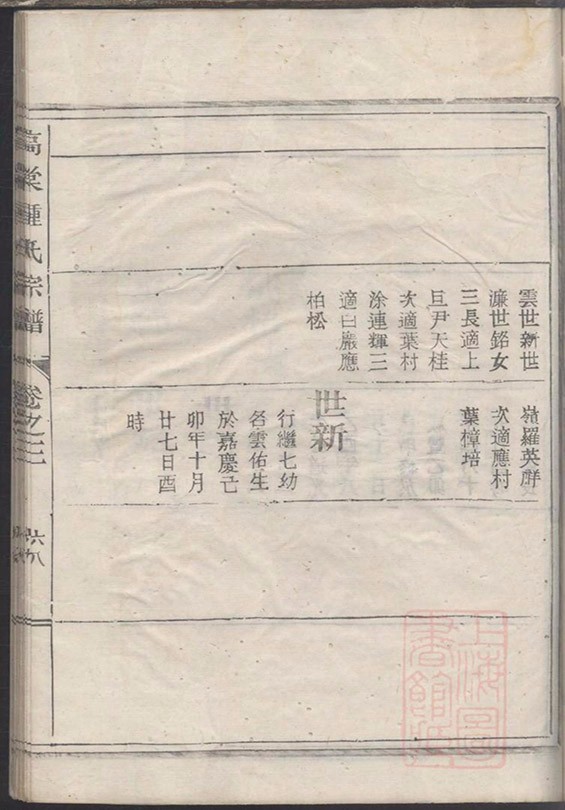 雲世新世
濂世銘女
三長適上
巨尹天桂
次適葉村
涂連輝三
適白巖應
柏松
嶺羅英群
次適應村
葉樟培
世新
行繼七幼
名雲佑生
於嘉慶己
卯年十月
廿七日酉
時
高棠鍾氏宗譜
卷之三
六八
上海圖
書館藏